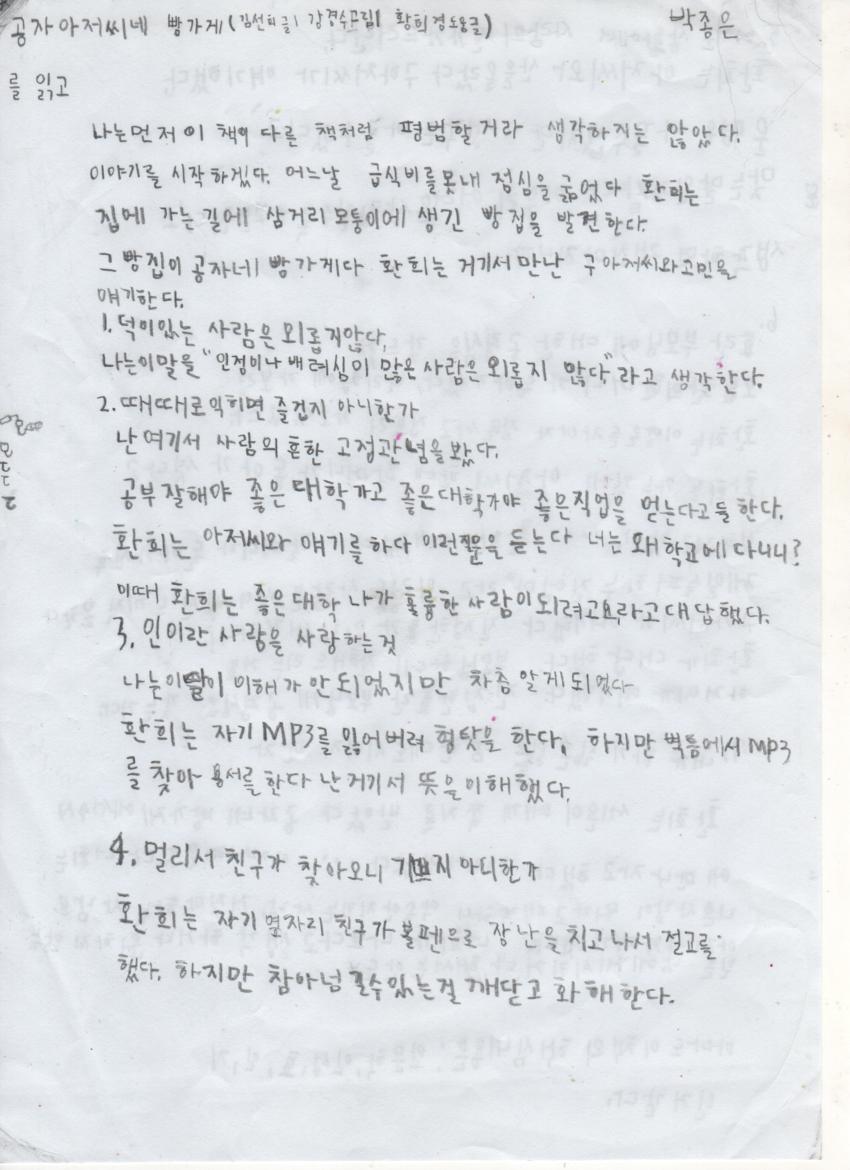 공자아저씨네 빵가게(김선희글| 강경수그림| 황희경도움글) 박종은
를 읽고
나는먼저 이 책이 다른 책처럼 평범할거라 생각하지는 않았다.
이야기를 시작하겠다. 어느날 급식비를못내 점심을 굶었다 환희는
집에 가는길에 삼거리모퉁이에 생긴 빵집을 발견한다.
그 빵집이 공자네 빵가게다 환희는 거기서 만난 구아저씨와고민을
얘기한다.
1. 덕이있는 사람은 외롭지않다.
나는이말을 "인정이나 배려심이 많은 사람은 외롭지 않다."라고 생각한다.
2. 때때로익히면 즐겁지 아니한가
난 여기서 사람의 흔한 고정관념을봤다.
공부잘해야 좋은대학가고 좋은대학가야 좋은직업을 얻는다고들 한다.
환희는 아저씨와 얘기를 하다 이런질문을 듣는다 너는 왜학교에 다니니?
이때 환희는 좋은대학 나가 훌륭한 사람이 되려고요라고대답했다.
3. 인이란 사람을 사랑하는것
나는이말이 이해가안되었지만 차츰 알게되었다
환희는 자기 MP3를 잃어버려 형탓을 한다. 하지만 벽틈에서 MP3
를 찾아 용서를한다 난 거기서 뜻을이해했다.
4. 멀리서 친구가 찾아오니 기쁘지 아니한가
환희는 자기 옆자리 친구가 볼펜으로 장난을 치고나서 절교를
했다. 하지만 참아넘길수있는걸 깨닫고 화해한다.